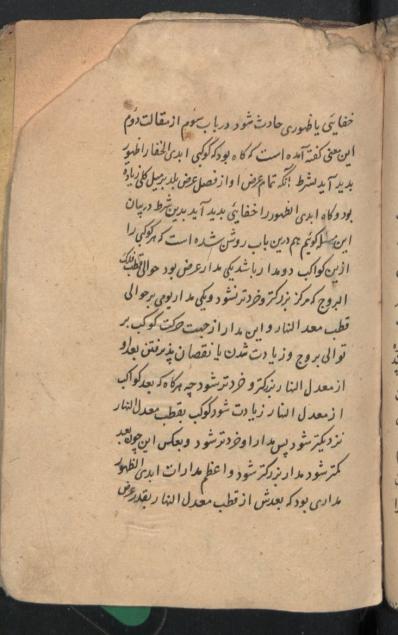 خفایئی یا ظهوری حادث شود در باب سوم از مقالت دوم
این معنی گفته آمده است که گاه بود که کوکبی ابدی الخفا را ظهور
پدید آید بشرط آنکه تمام عرض او از فصل عرض بلد بر میل کلی زیاده
بود و گاه ابدی الظهور را خفایئی پدید آید بدین شرط در بیان
این گوئیم هم درین باب روشن شده است که هر کوکبی را
ازین کواکب دو مدار باشد یکی مدار عرض بود حوالی قطب فلک
البروج که هرگز بزرگتر و خردتر نشود و یکی مدار یومی بر حوالی
قطب معدل النهار و این مدار از جهت حرکت کوکب بر
توالی بروج و زیادت شدن یا نقصان پذیرفتن بعد او
از معدل النهار بزرگتر و خردتر شود چه هرگاه که بعد کواکب
از معدل النهار زیادت شود کوکب بقطب معدل النهار
نزدیکتر شود پس مدار او خردتر شود و بعکس این چون بعد
کمتر شود مدار بزرگتر شود و اعظم مدارات ابدی الظهور
مداری بود که بعدش از قطب معدل النهار بقدر عرض